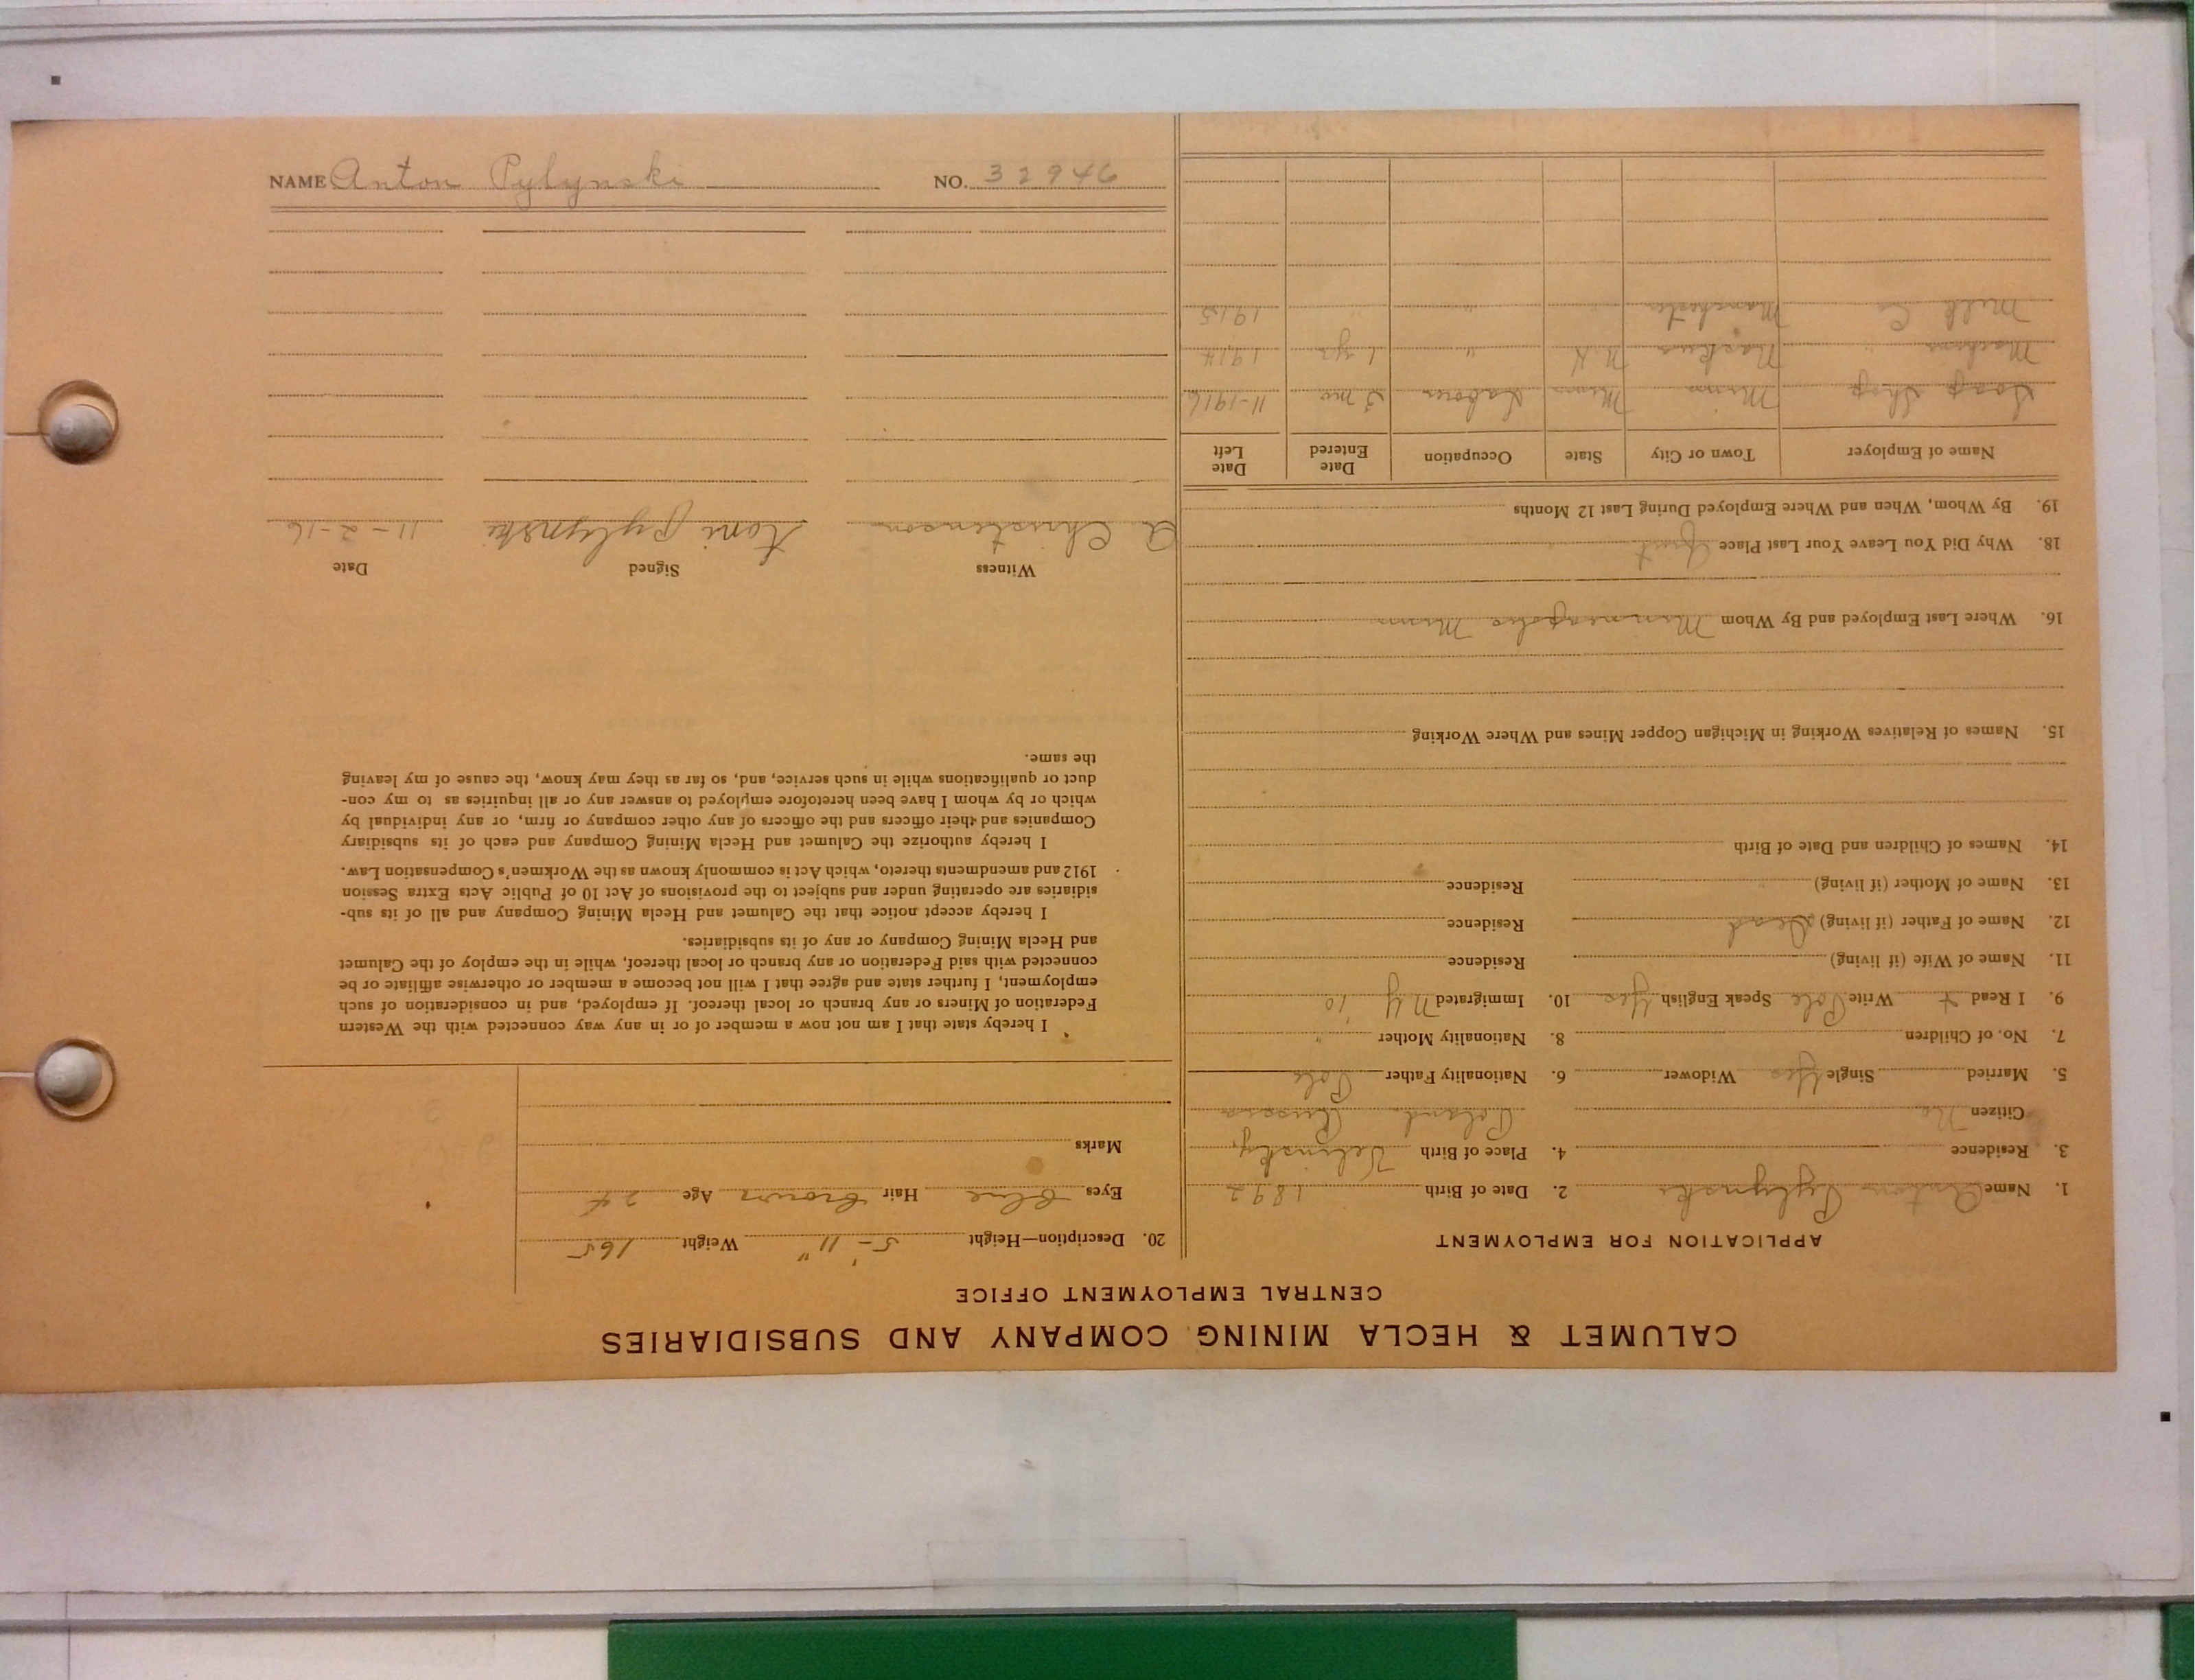 NAME Anton Pylynski NO. 32946
CALUMET & HECLA MINING COMPANY AND SUBSIDIARIES
CENTRAL EMPLOYMENT OFFICE
APPLICATION FOR EMPLOYMENT
1. Name Anton Pylynski 2. Date of Birth 1892
3. Residence 4. Place of Birth
Citizen No Poland Russia
5. Married Single Yes Widower 6. Nationality Father Pole
7. No. of Children 8. Nationality Mother "
9. I Read + Write Pole Speak English Yes 10. Immigrated N Y 10
11. Name of Wife (if living) Residence
12. Name of Father (if living) Dead Residence
13. Name of Mother (if living) " Residence
14. Names of Children and Date of Birth
15. Names of Relatives Working in Michigan Copper Mines and Where Working
16. Where Last Employed and By Whom Minneapolis Minn
18. Why Did You Leave Your Last Place Quit
19. By Whom, When and Where Employed During Last 12 Months
Name of Employer Town or City State Occupation Date Entered Date Left
Soap Shop Minn Minn Laborer 2 mo 11-1916
N.H " 1 yr 1914
Milk Co Manchester " " 1915
20. Description—Height 5'-11" Weight 165
Eyes Blue Hair Brown Age 24
Marks
I hereby state that I am not now a member of or in any way connected with the Western
Federation of Miners or any branch or local thereof. If employed, and in consideration of such
employment, I further state and agree that I will not become a member or otherwise affiliate or be
connected with said Federation or any branch or local thereof, while in the employ of the Calumet
and Hecla Mining Company or any of its subsidiaries.
I hereby accept notice that the Calumet and Hecla Mining Company and all of its sub-
sidiaries are operating under and subject to the provisions of Act 10 of Public Acts Extra Session
1912 and amendments thereto, which Act is commonly known as the Workmen's Compensation Law.
I hereby authorize the Calumet and Hecla Mining Company and each of its subsidiary
Companies and their officers and the officers of any other company or firm, or any individual by
which or by whom I have been heretofore employed to answer any or all inquiries as to my con-
duct or qualifications while in such service, and, so far as they may know, the cause of my leaving
the same.
Witness Signed Date
A Christenson Toni Pylynski 11-2-16